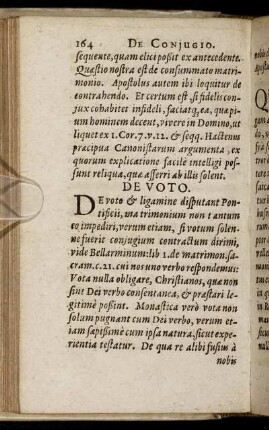 164 DE CONJUGIO.
sequente, quam elici possit ex antecedente.
Quæstio nostra est de consummato matri-
monio. Apostolus autem ibi loquitur de
contrahendo. Et certum est, si fidelis con-
jux cohabitet infideli, faciatq, ea, quæ pi-
um hominem decent, vivere in Domino, ut
liquet ex 1. Cor. 7. v. 12. & seqq. Hactenus
præcipua Canonistarum argumenta, ex
quorum explicatione facile intelligi pos-
sunt reliqua, quæ afferri ab illis solent.
DE VOTO.
De voto & ligamine disputant Pon-
tificii, matrimonium non tantum
eo impediri, verum etiam, si votum solen-
ne fuerit conjugium contractum dirimi,
vide Bellarminum: lib 1. de matrimon. sa-
cram. c. 21. cui nos uno verbo respondemus:
Vota nulla obligare, Christianos, quæ non
sint Dei verbo consentanea, & præstari le-
gitimè possint. Monastica verò vota non
solum pugnant cum Dei verbo, verum et-
iam sæpissimè cum ipsa natura, sicut expe-
rientia testatur. De qua re alibi fusius à
nobis